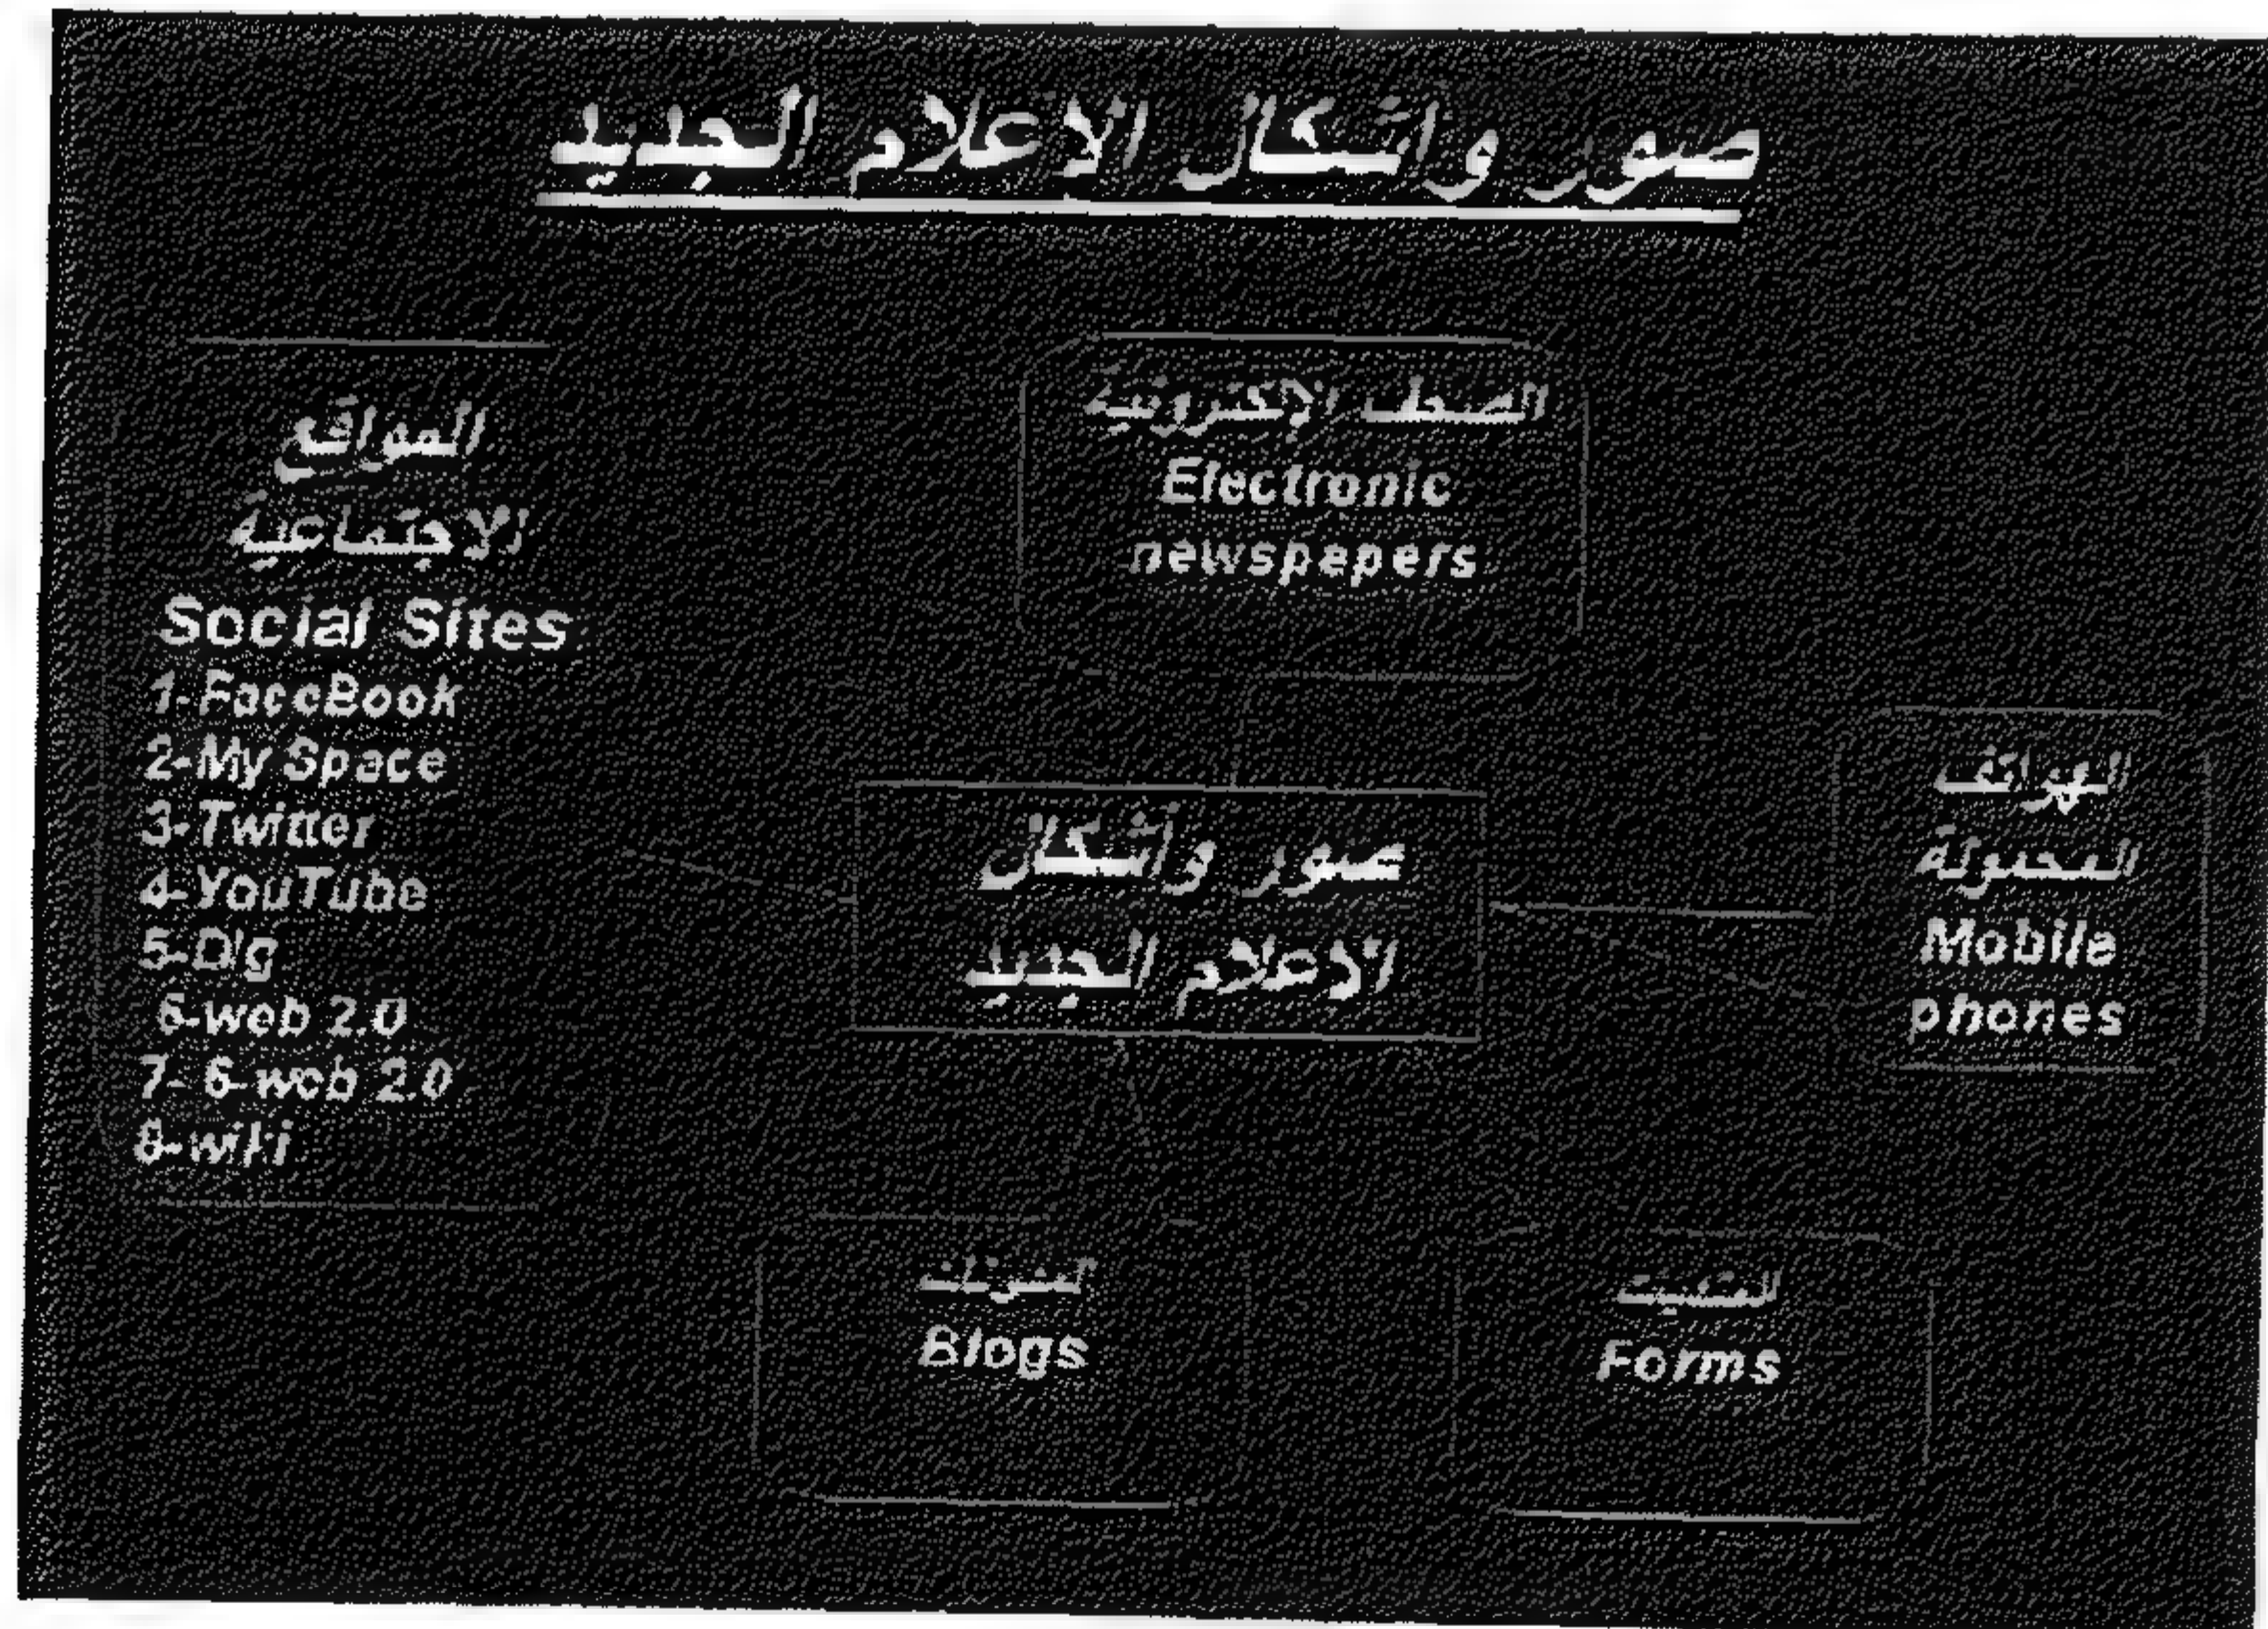 صور وأشكال الاعلام الجديد
الصحف الإلكترونية
Electronic
newspapers
المواقع
الاجتماعية
Social Sites
1-FaceBook
2-My Space
3-Twitter
4-YouTube
5-Dig
6-web 2.0
7- 6-web 2.0
8-wiki
صور وأشكال
الاعلام الجديد
الهواتف
المحمولة
Mobile
phones
المدونات
Blogs
Forms